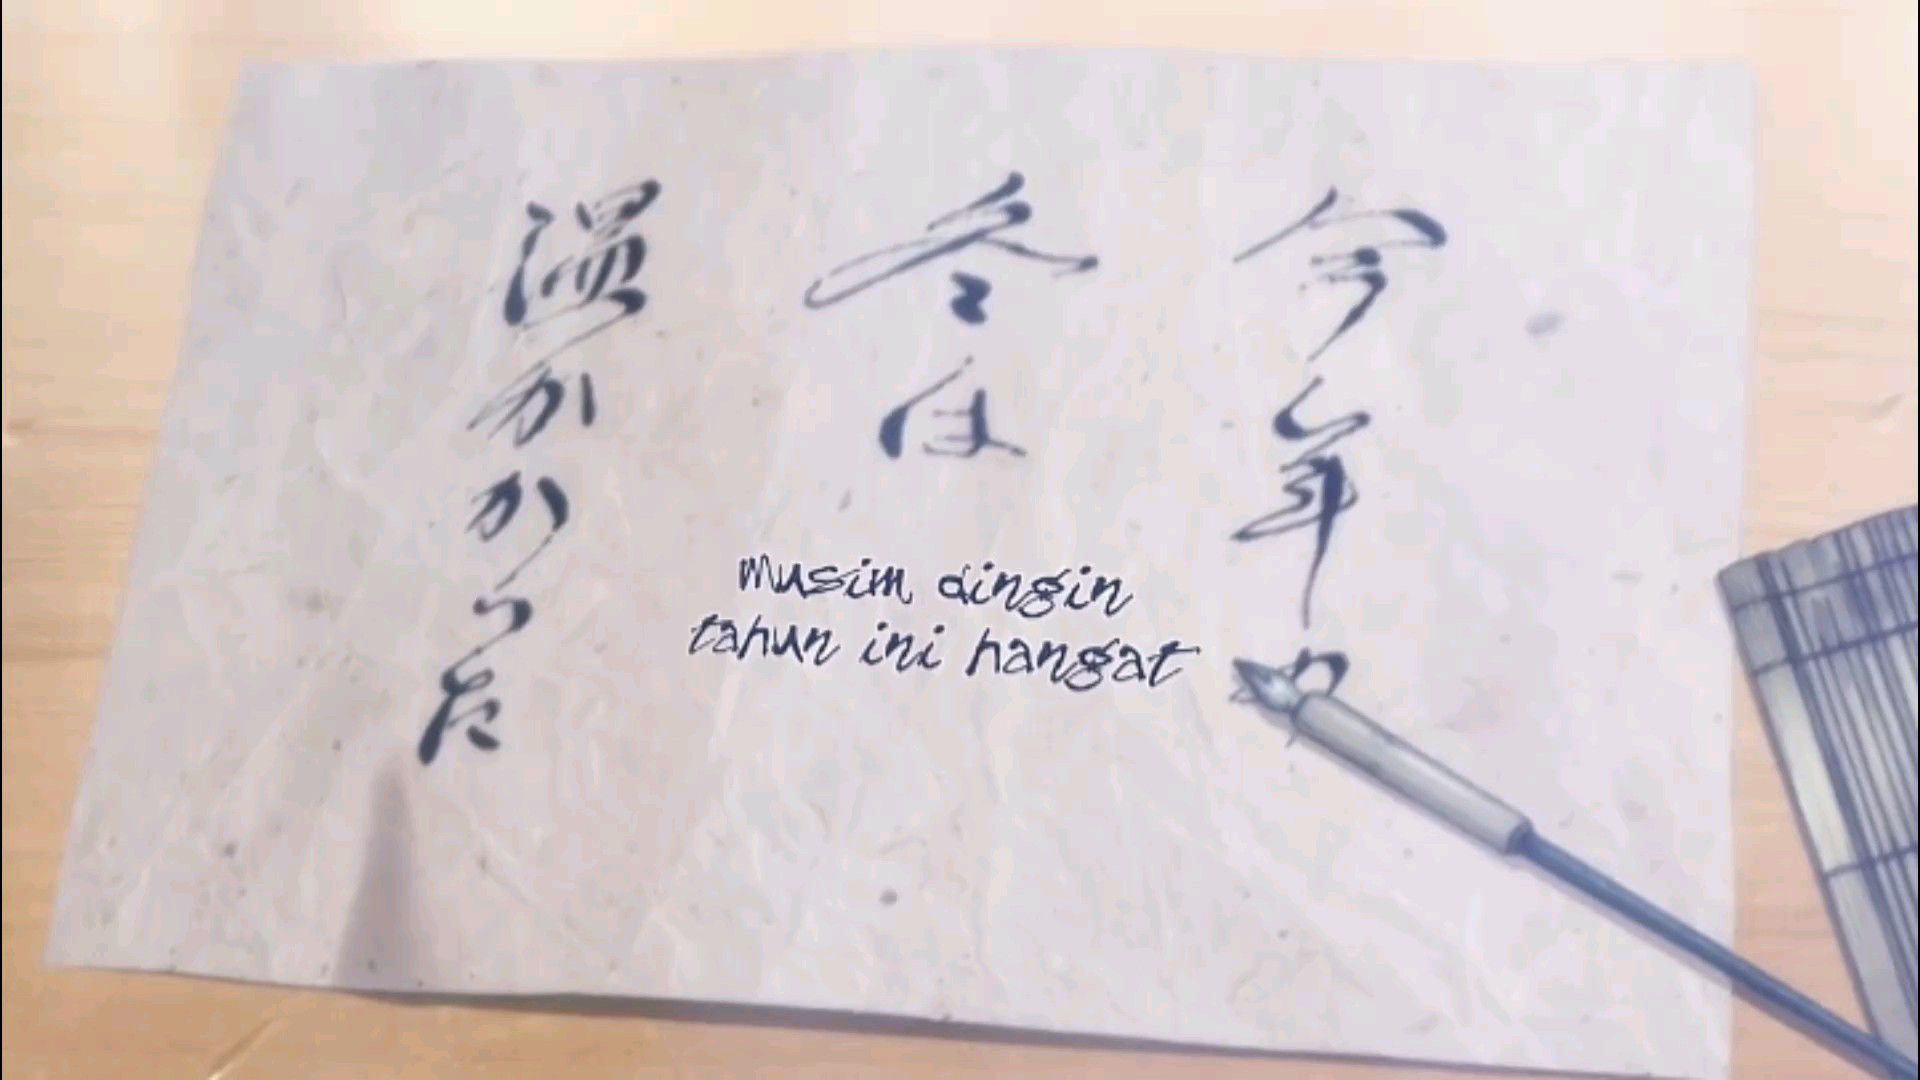 今年の
冬は
温かかった
Musim dingin
tahun ini hangat